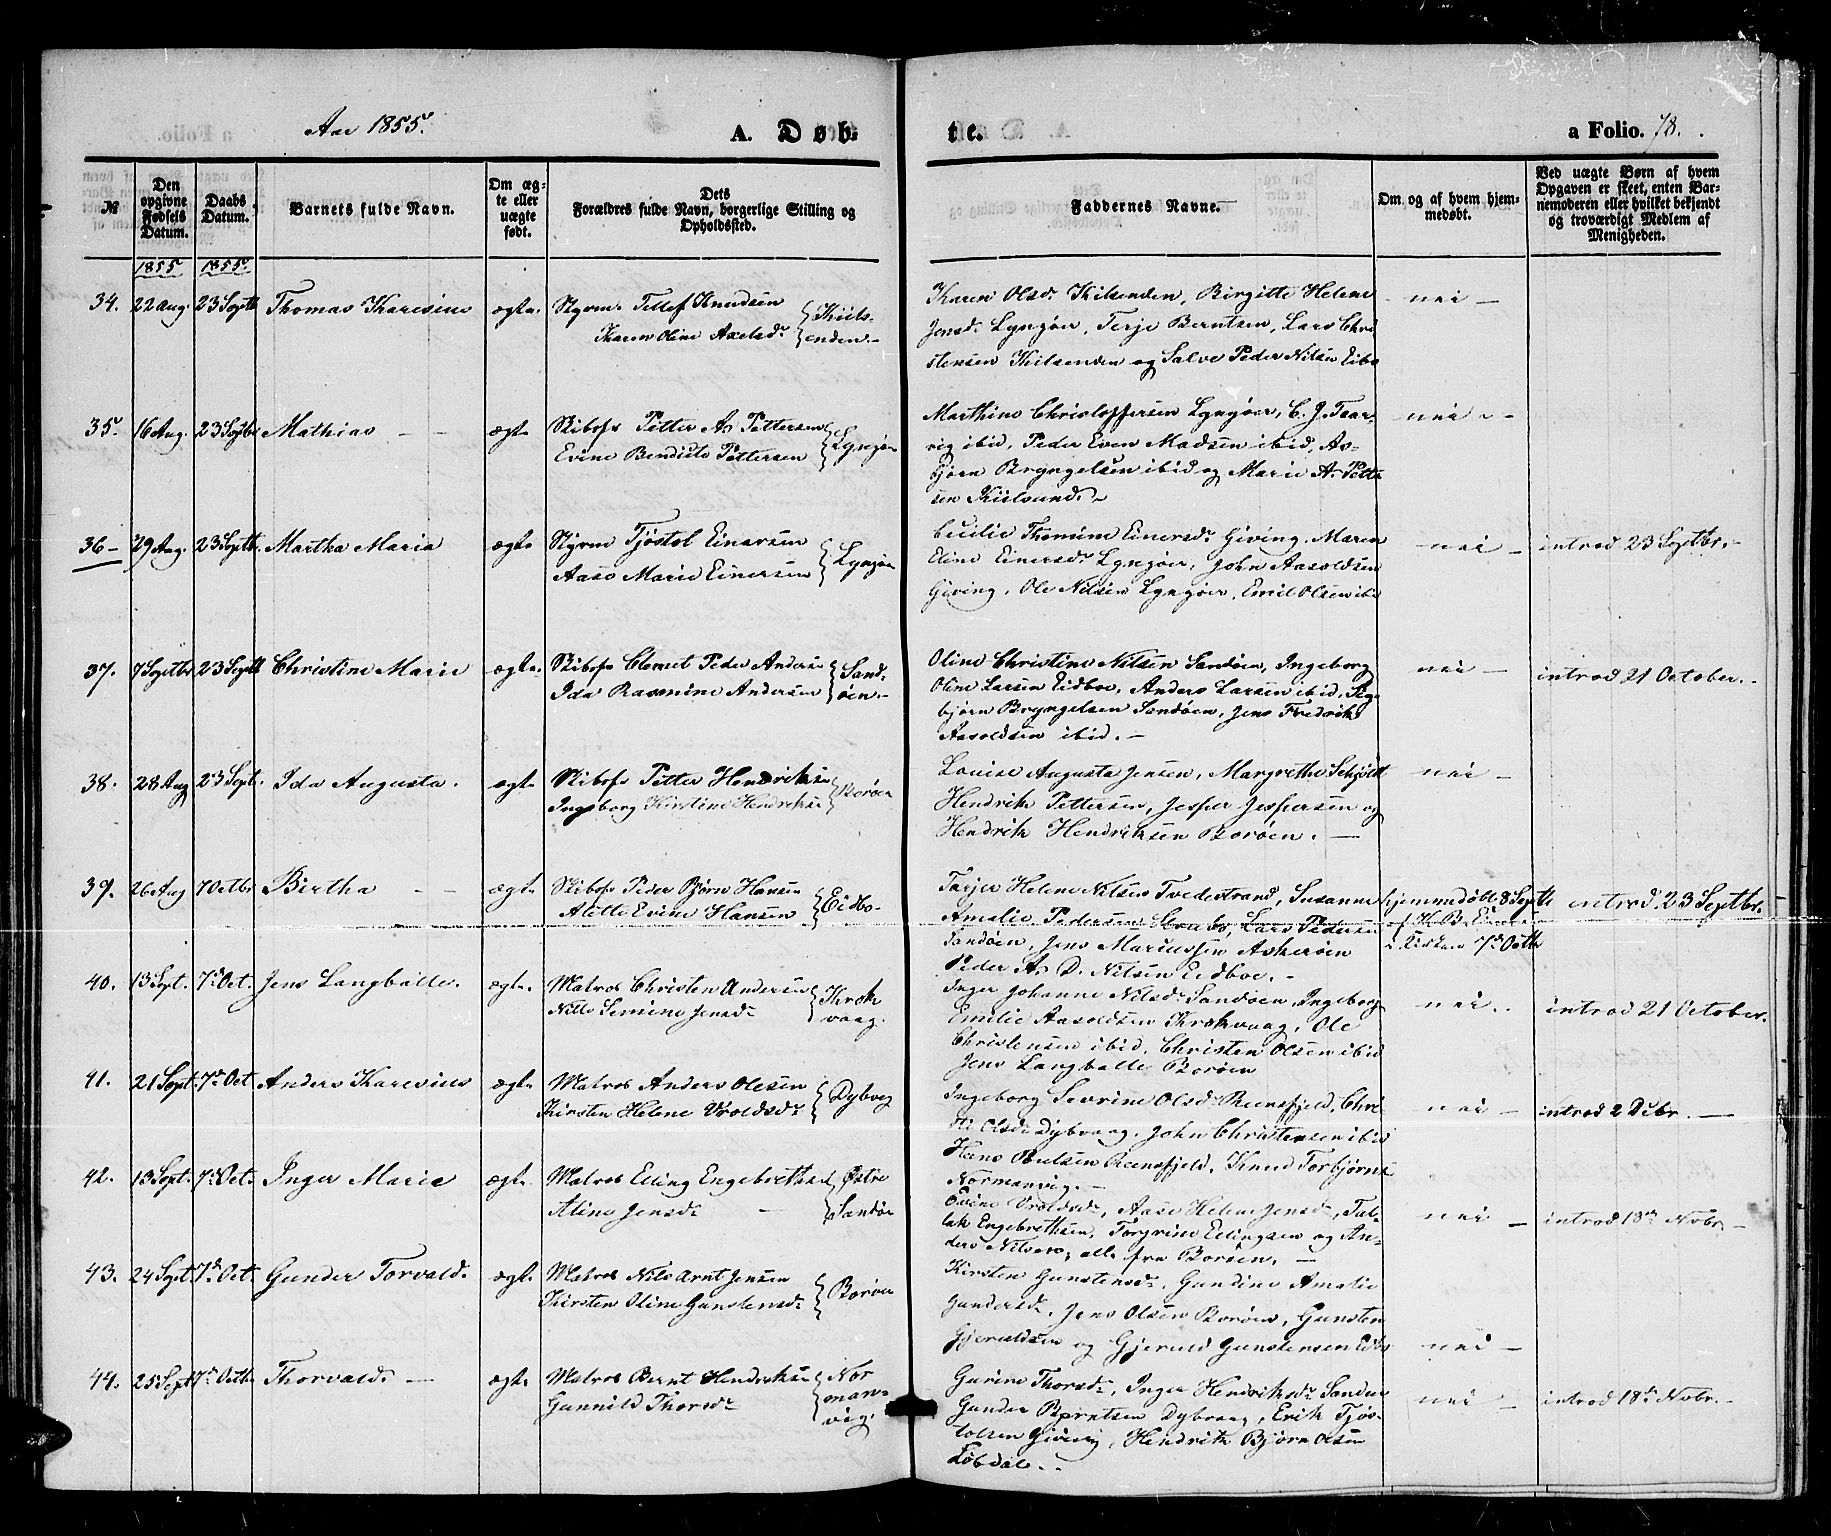 Aar 1855.
A. Døb-
te.
a Folio. 78.
№
Den opgivne Fødsels Datum.
Daabs Datum.
Barnets fulde Navn.
Om ægte eller uægte født.
Dets
Forældres fulde Navn, borgerlige Stilling og
Opholdssted.
Faddernes Navne.
Om og af hvem hjem-
medøbt.
Ved uægte Børn af hvem
Opgaven er skeet, enten Bar-
nemoderen eller hvilket bekjendt
og troværdigt Medlem af
Menigheden.
1855 1855
34. 22 Aug. 23 Septb Thomas Karesius ægte. Styrm. Tellef Knudsen
Karen Oline Axelsdr Kiils-
enden.-
Karen Olsdr Kilsenden, Birgitte Helene
Jensdr Lyngøer, Terje Berntsen, Lars Chri
stensen Kilsenden og Salve Peder Nilsen Eibo
nei -
35. 16 Aug. 23 Septbr Mathias - - ægte Skibsfr Petter As Pettersen
Evine Bendicte Pettersen Lyngøer
Marthine Christoffersen Lyngøer, C. J. Taar-
vig ibid, Peder Even Madsen ibid, As-
bjørn Bryngelsen ibid og Marie A. Petter
sen Kiilsund.
nei -
36- 29 Aug. 23 Septb. Martha Maria ægte Styrm Tjøstol Einersen
Aase Marie Einersen Lyngøer
Cecilie Thomine Einersdr Giving, Maren
Eline Einersdr Lyngøer, John Aasoldsen
Giving, Ole Nilsen Lyngøer, Emil Olsen ibid
nei - introd 23 Septbr.-
37. 7 Septbr 23 Septb Christine Marie ægte. Skibsfr Clemet Peder Anders
Ida Rasmine Andersen Sand-
øen.-
Oline Christine Nilsen Sandøen, Ingeborg
Oline Larsen Eidboe, Anders Larsen ibid, Sig-
bjørn Bryngelsen Sandøen, Jens Fredrik
Aasoldsen ibid.-
nei - introd 21 October.-
38. 28 Aug 23 Sept. Ida Augusta. ægte Skibsfr Petter Hendriksen
Ingeborg Kirstine Hendriksen Borøen
Louise Augusta Jensen, Margrethe Schjøldt
Hendrik Pettersen, Jesper Jespersen og
Hendrik Hendriksen Borøen. -
nei -
39. 26 Aug 7 Octbr Birtha - - ægte Skibsfr Peder Bjørn Hansen
Alette Evine Hansen Eidbo-
Tarjer Helene Nilsen Tvedestrand, Susanne
Amalie Pedersen, Lars Pedersen
Sandøen, Jens Mariussen Askerøen
Peder As D. Nilsen Eidboe.-
hjemmedøbt 8 Septb
i Kirken 7de Octb introd. 23 Septbr.
40. 13 Sept. 7de Oct. Jens Langballe. ægte. Matros Christen Andersen
Nille Semine Jensdr Krok
vaag.
Inger Johanne Nilsdr Sandøen, Ingeborg
Emilie Aasoldsen Krokvaag, Ole
Christensen ibid, Christen Olsen ibid
Jens Langballe Borøen
nei. introd 21 October.
41. 21 Sept. 7de Oct. Anders Karesius ægte Matros Anders Olesen
Kirsten Helene Vroldsdr Dybvog
Ingeborg Sevrine Olsdr Reensfjeld, Chri
sti Olsdr Dybvaag, John Christensen ibid
Hans Poulsen Reensfjeld, Knud Torbjørns
Normanvig.-
nei - introd 2 Decbr. -
42. 13 Sept. 7de Oct. Inger Marie ægte Matros Elling Engebrethsen
Aline Jensdr - Østre
Sandøe
Evine Vroldsdr, Aase Helene Jensdr, Tal-
lak Engebrethsen, Torgrine Ellingsen og An-
ders Nilsen, alle fra Borøen. -
nei - introd 18de Novbr -
43. 24 Sept. 7de Oct. Gunder Torvald. ægte. Matros Nils Arnt Jensen
Kirsten Oline Gunstensdr Borøen
Kirsten Gunstensdr, Gundine Amalie
Gundersdr, Jens Olsen Borøen, Gunsten
Gjeruldsen og Gjeruld Gunstensen Eidbo
nei -
44. 25 Sept 7de Octb. Thorvald. - ægte Matros Bernt Hendriksen
Gunnild Thorsdr Nor
man-
vig.
Gurine Thorsdr, Inger Hendriksdr Sandøe
Gunder Berntsen Dybvaag, Erik Tjøs-
tolsen Giving, Hendrik Bjørn Olsen
Løbdal.-
nei - introd 18de Novbr.-